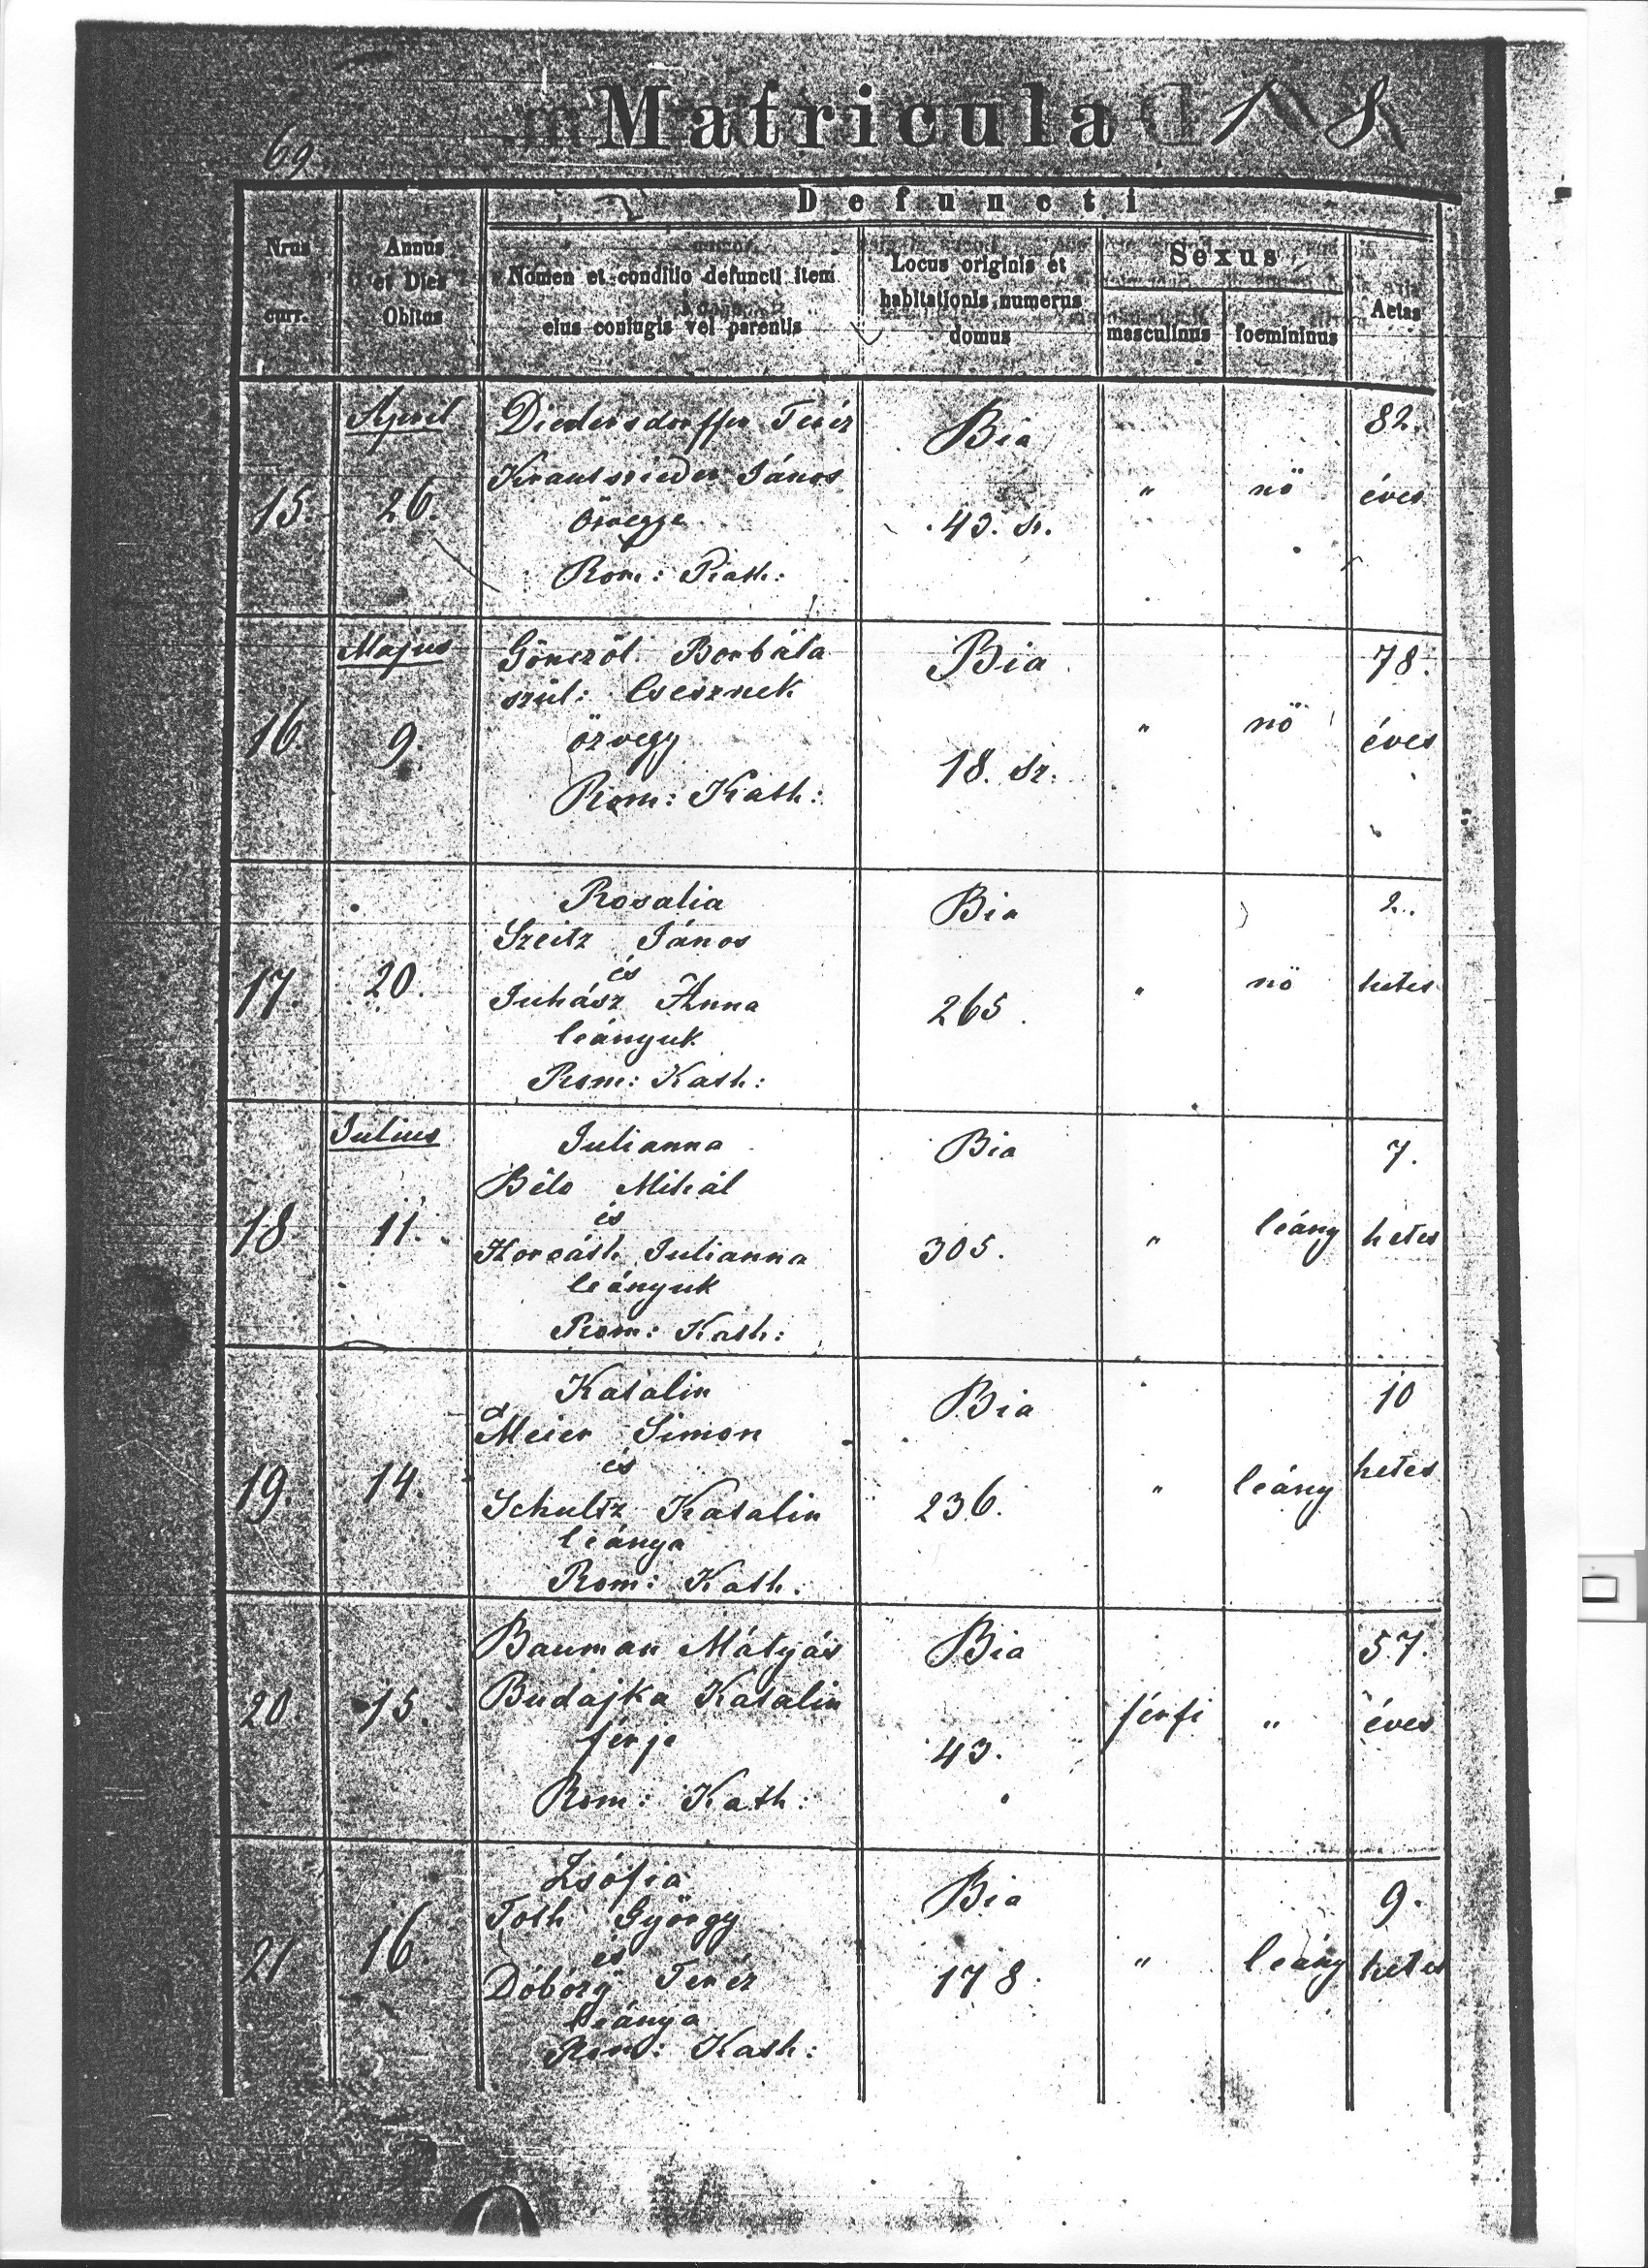 Matricula 18
69
Defuncti
Nrus curr.
Annus et Dies Obitus
Nomen et conditio defuncti item eius coniugis vel parentis
Locus originis et habitationis, numerus domus
Sexus
masculinus
foemininus
Aetas
April
15. 26.
Diedersdorffer Teréz
János
özvegye
Rom: Kath:
Bia
43. sz.
" nö
82. éves
Majus
16. 9.
Gönczöl Borbála
szül: Csesznek
özvegy
Rom: Kath:
Bia
18. sz.
" nö
78. éves
17. 20.
Rosalia
Szeitz János
és
Juhász Anna
leányuk
Rom: Kath:
Bia
265.
" nö
2. hetes
Julius
18 11.
Julianna
Biló Mihál
és
Horváth Julianna
leányuk
Rom: Kath:
Bia
305.
" leány
7. hetes
19. 14.
Katalin
Meier Simon
és
Schultz Katalin
leánya
Rom: Kath.
Bia
236.
" leány
10 hetes
20. 15.
Bauman Mátyás
Budajka Katalin
férje
Rom: Kath:
Bia
43.
férfi "
57. éves
21 16.
Zsófia
Toth György
és
Teréz
leánya
Rom: Kath:
Bia
178.
" leány
9. hetes